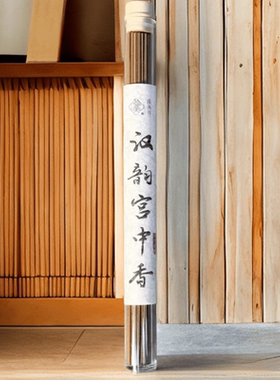 汉韵宫中香